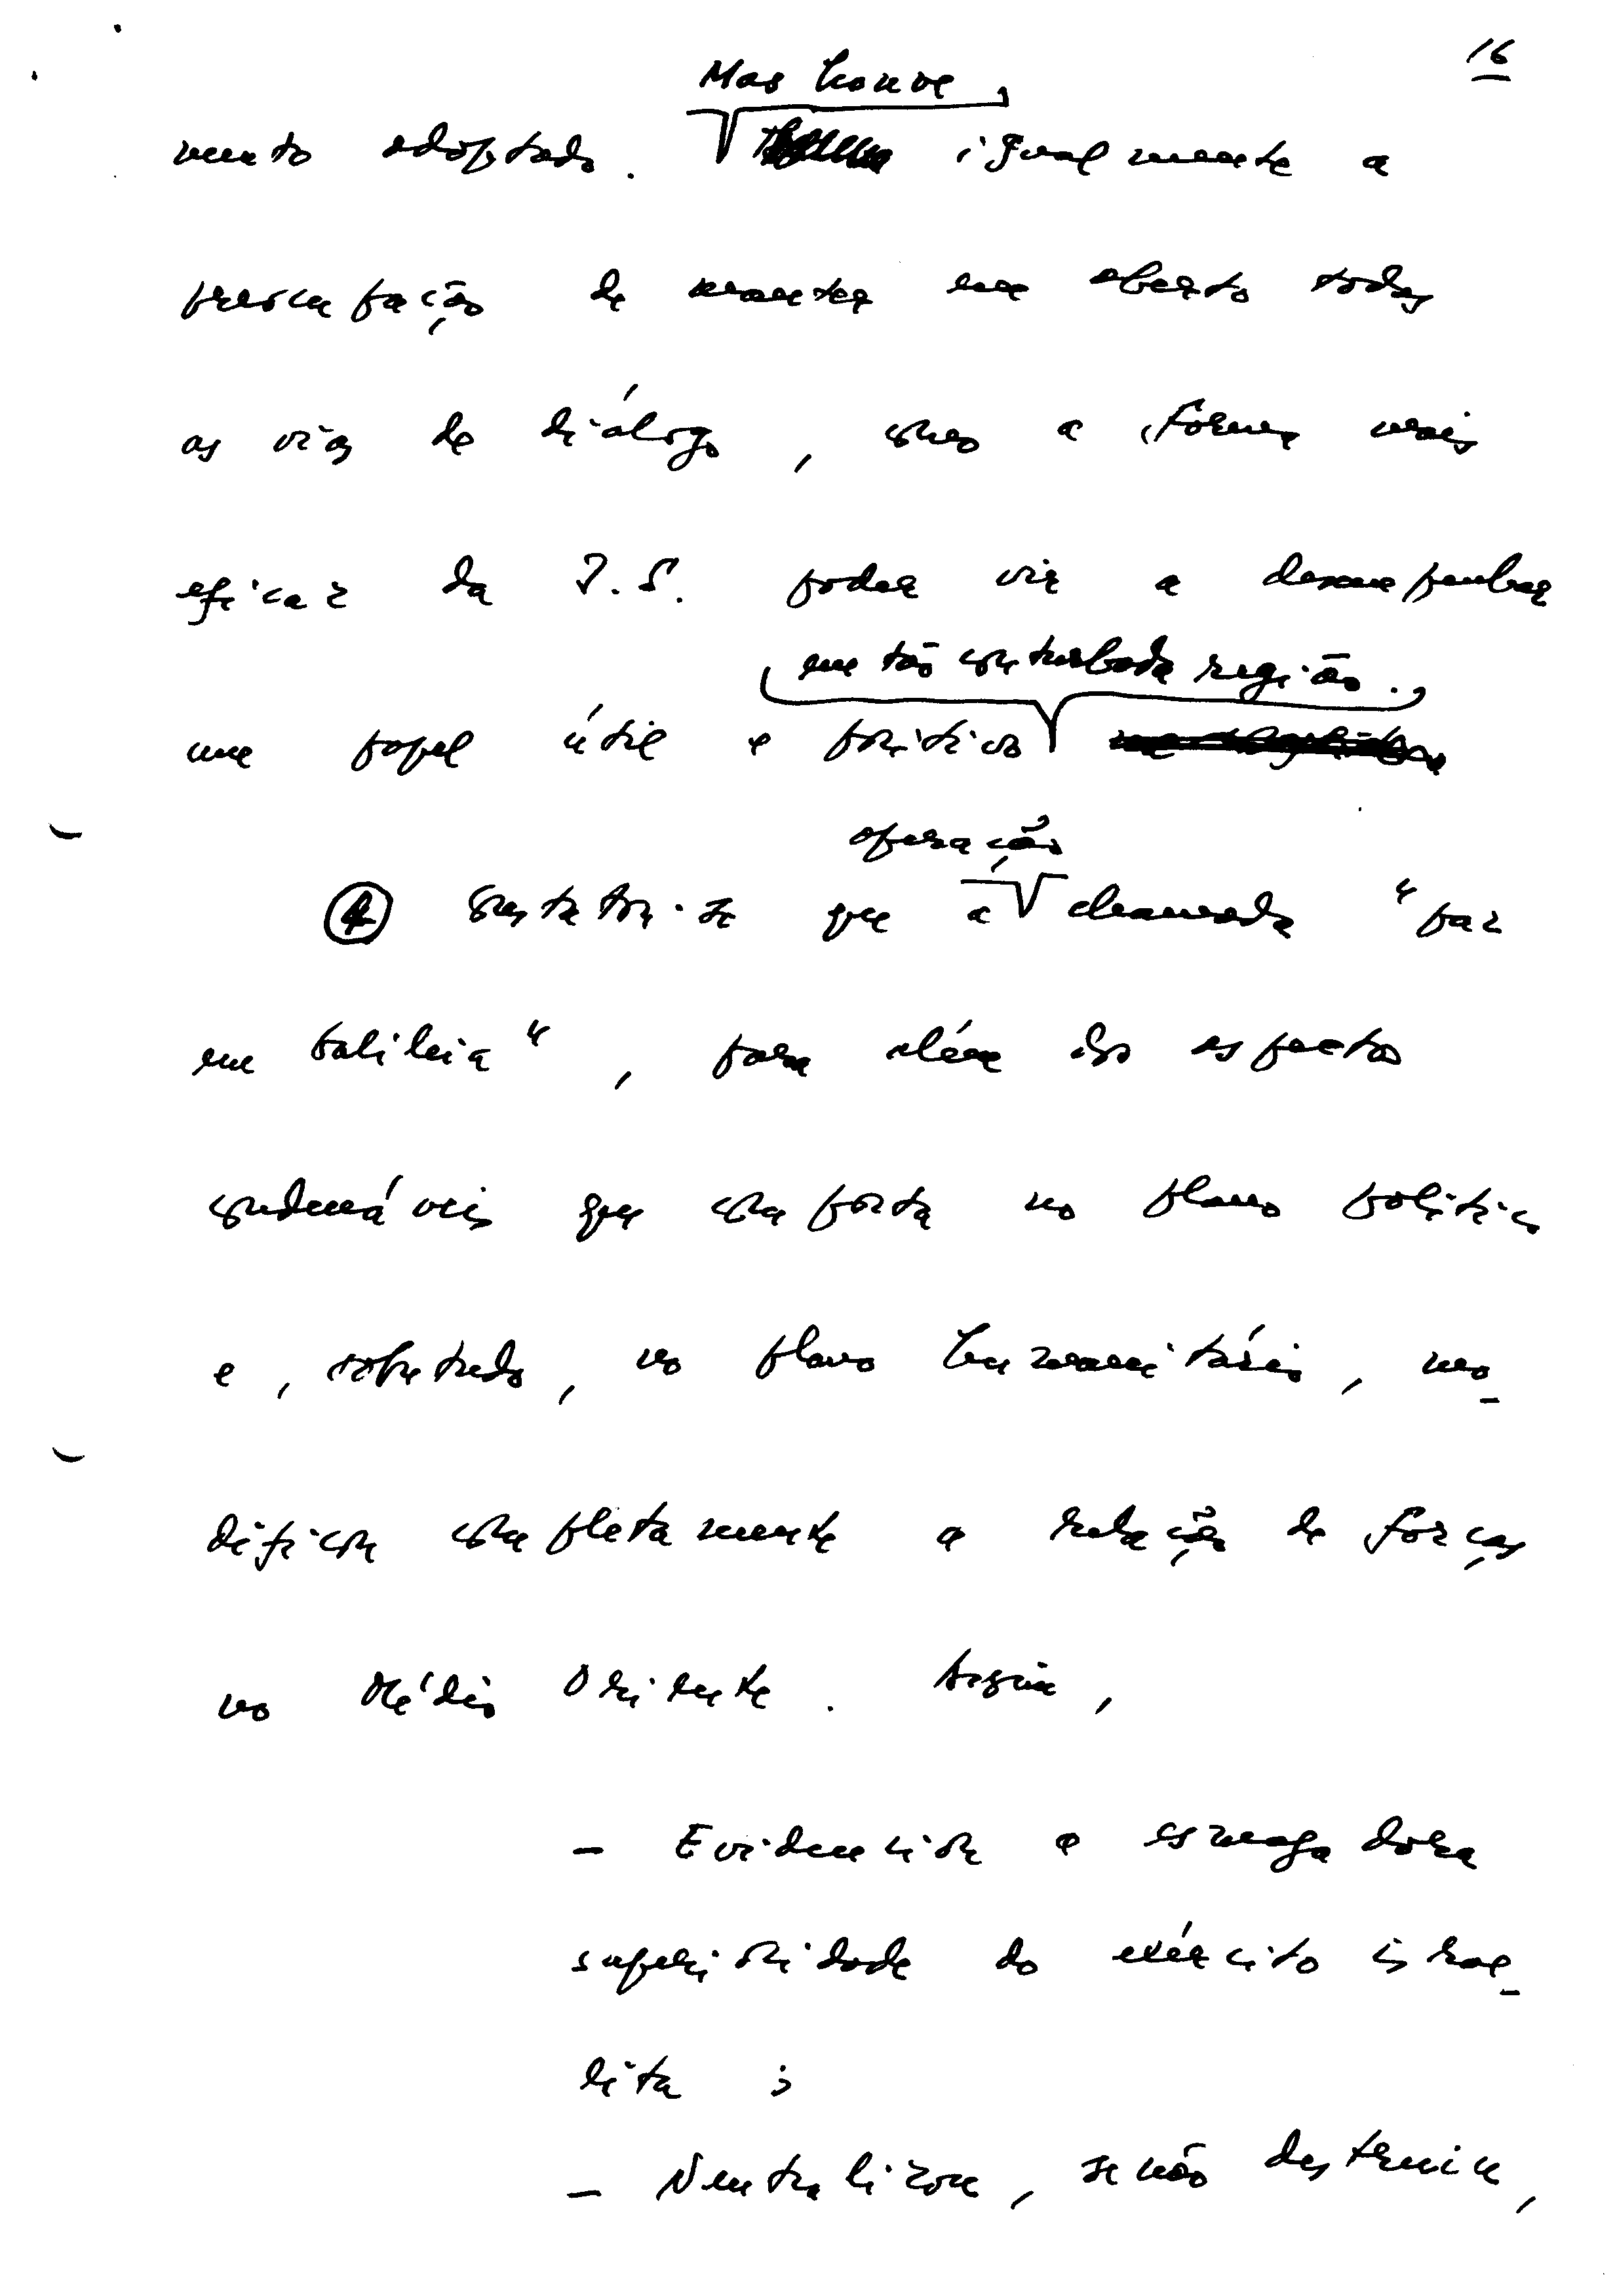 16
Mas houve
mento adoptado. igualmente a
preocupação de manter em aberto todas
as vias de diálogo, como a forma mais
eficaz da I.S. poder vir a desempenhar
em tão conturbada região.
um papel útil e positivo
operação
④ Constatou-se que a chamada "paz
em Galileia", para além dos aspectos
condenáveis que comporta no plano político
e, sobretudo, no plano humanitário, mo-
dificou completamente a relação de forças
no Médio Oriente. Assim,
- Evidenciou a esmagadora
superioridade do exército israe-
lita ;
- Neutralizou, se não destruiu,